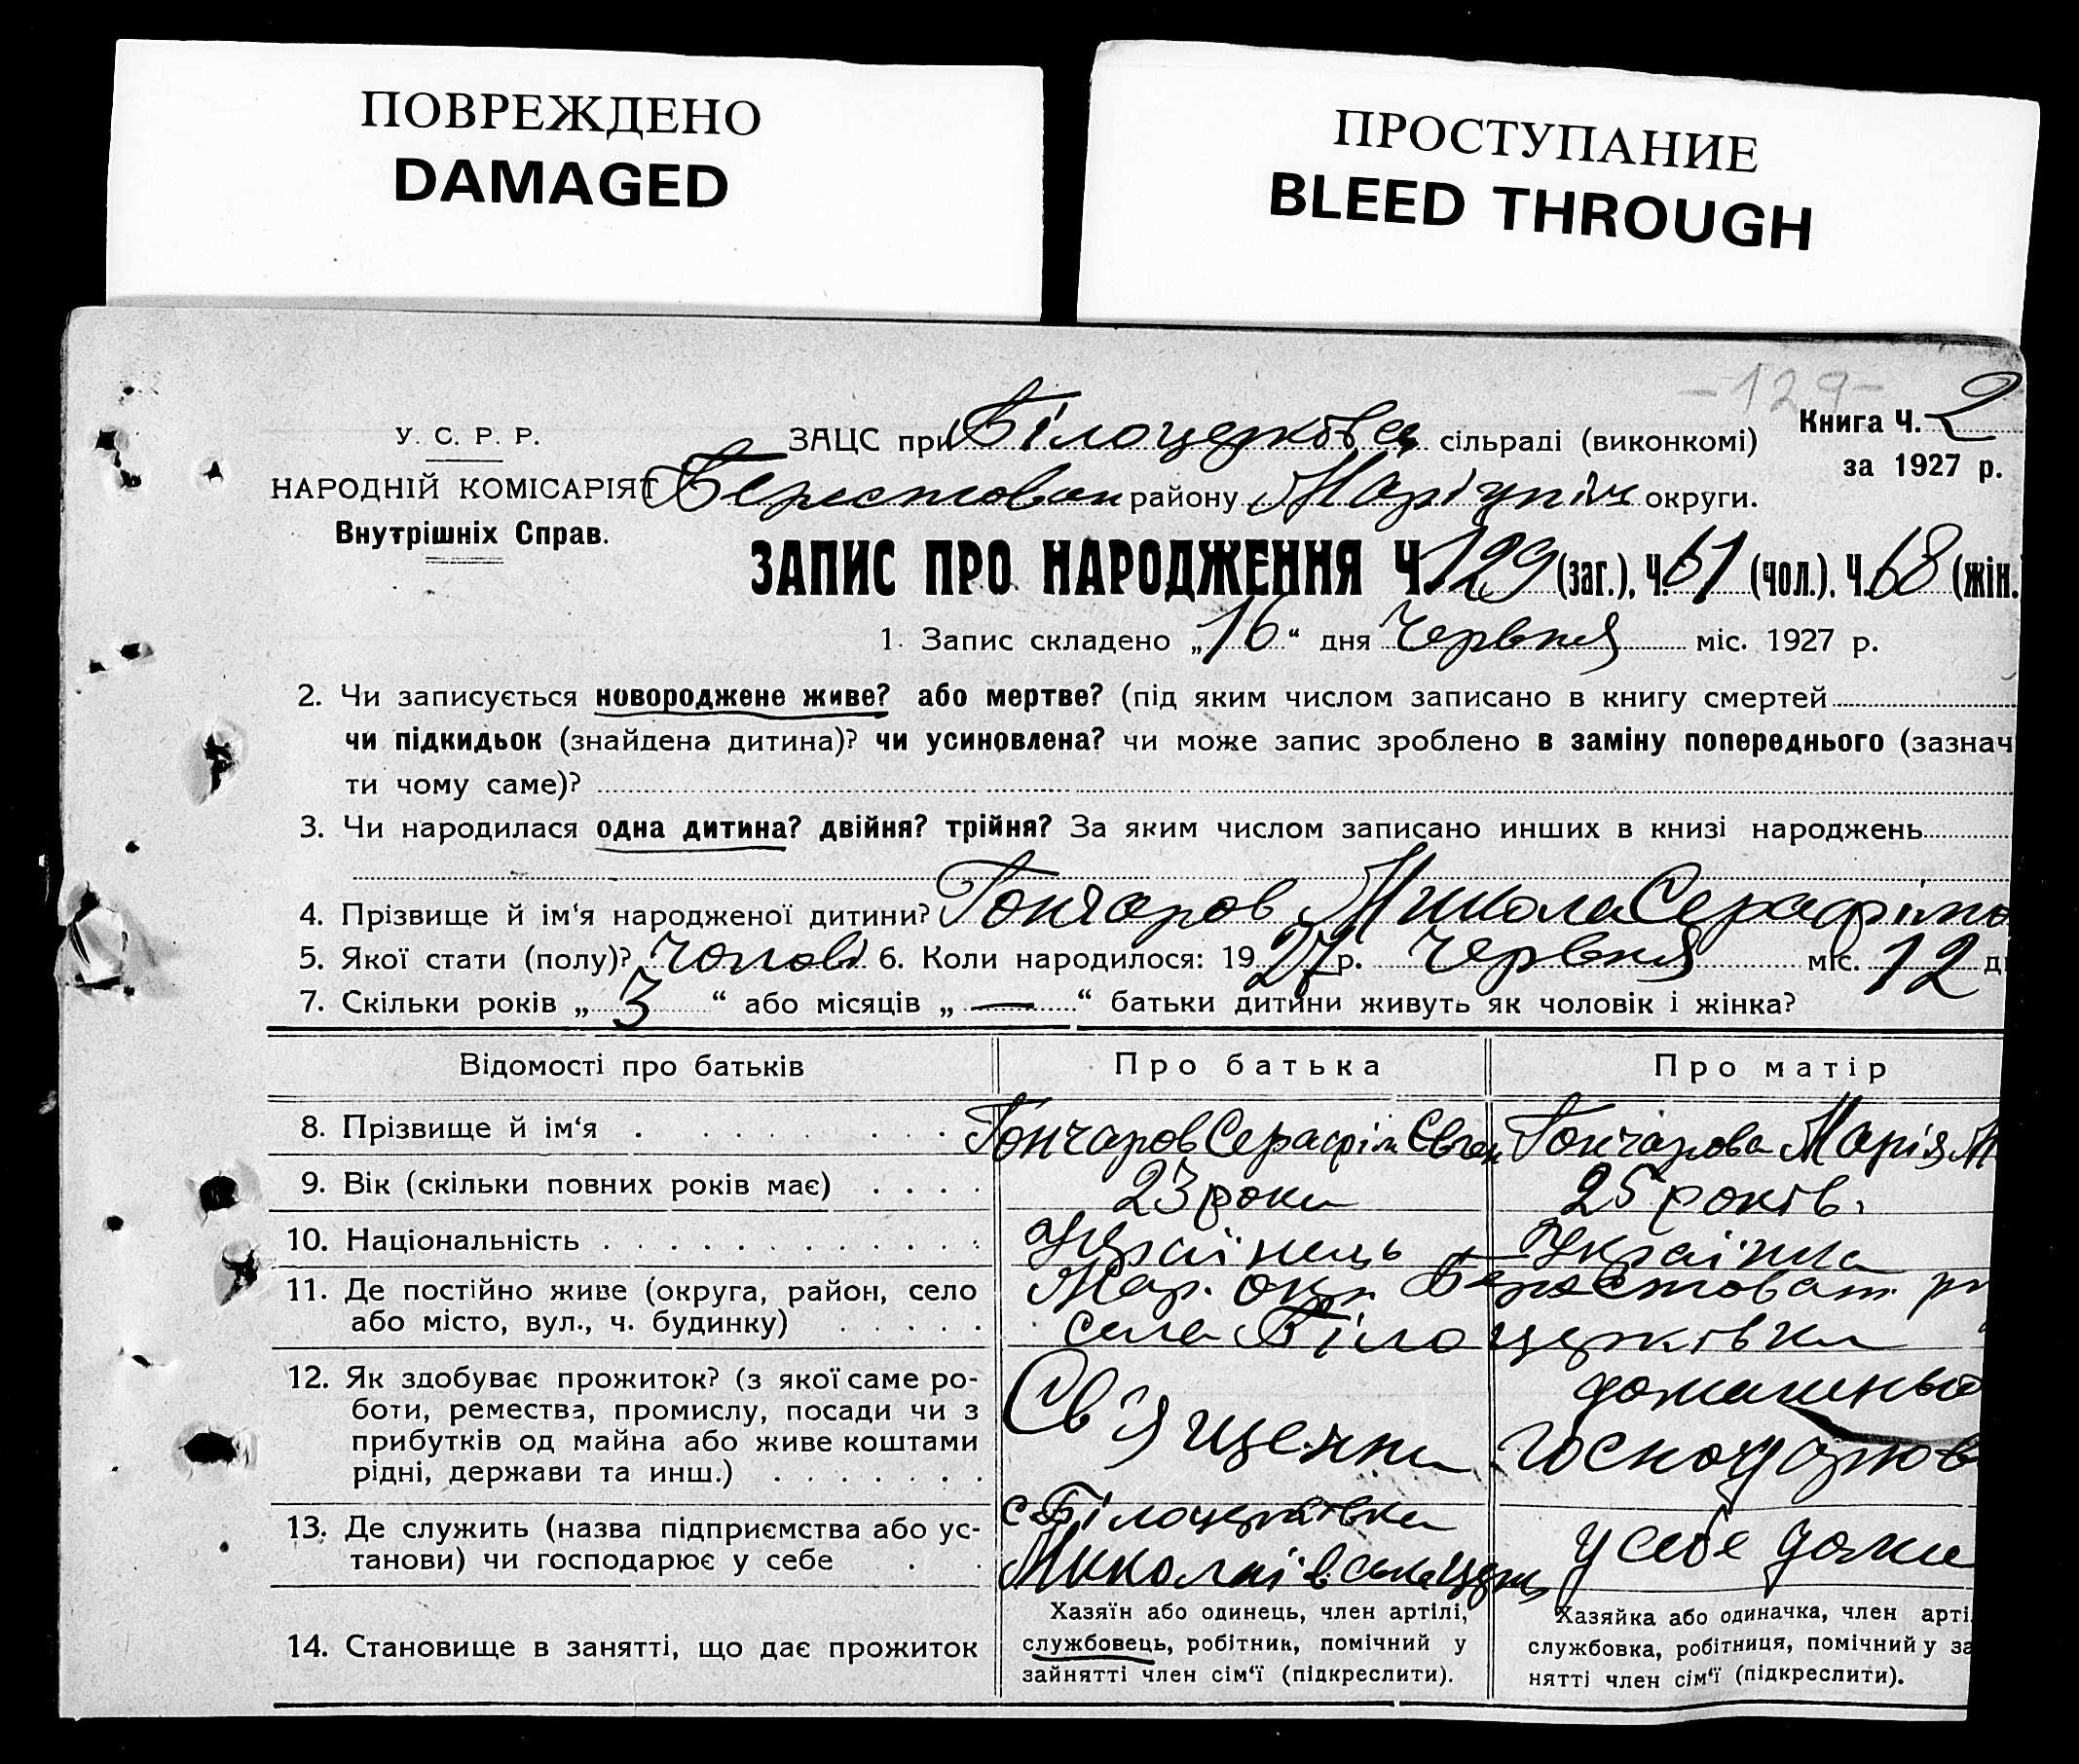 ПОВРЕЖДЕНО
DAMAGED
ПРОСТУПАНИЕ
BLEED THROUGH
-129-
Книга Ч. 2
за 1927 р.
У. С. Р. Р.
НАРОДНІЙ КОМІСАРІЯТ
Внутрішніх Справ.
ЗАЦС при Білоцерковец сільраді (виконкомі)
района Маріупіл округи.
ЗАПИС ПРО НАРОДЖЕННЯ Ч. 129 (заг.), Ч. 61 (чол.). Ч. 68 (жін.
1. Запис складено „16“ дня Червня міс. 1927 р.
2. Чи записується новороджене живе? або мертве? (під яким числом записано в книгу смертей
чи підкидьок (знайдена дитина)? чи усиновлена? чи може запис зроблено в заміну попереднього (зазнач
ти чому саме)?
3. Чи народилася одна дитина? двійня? трійня? За яким числом записано инших в книзі народжень
4. Прізвище й ім‘я народженої дитини? Гончаров Микола Серафімо
5. Якої стати (полу)? Чолові 6. Коли народилося: 1927 р. Червня міс. 12 д
7. Скільки років „3“ або місяців „—“ батьки дитини живуть як чоловік і жінка?
Відомості про батьків Про батька Про матір
8. Прізвище й ім‘я Гончаров Серафім Євген Гончарова Марія М
9. Вік (скільки повних років має) 23 роки 25 років.
10. Національність Українець Українка
11. Де постійно живе (округа, район, село Мар. окр. Берестоват. р
або місто, вул., ч. будинку) села Білоцерківки
12. Як здобуває прожиток? (з якої саме ро-
боти, ремества, промислу, посади чи з
прибутків од майна або живе коштами
рідні, держави та инш.)
Св'ящени
домашньо
13. Де служить (назва підприємства або ус-
танови) чи господарює у себе
с. Білоцерківка
у себе дома
14. Становище в занятті, що дає прожиток
Хазяїн або одинець, член артілі,
службовець, робітник, помічний у
зайнятті член сім‘ї (підкреслити).
Хазяйка або одиначка, член арті
службовка, робітниця, помічний у за
нятті член сім‘ї (підкреслити).